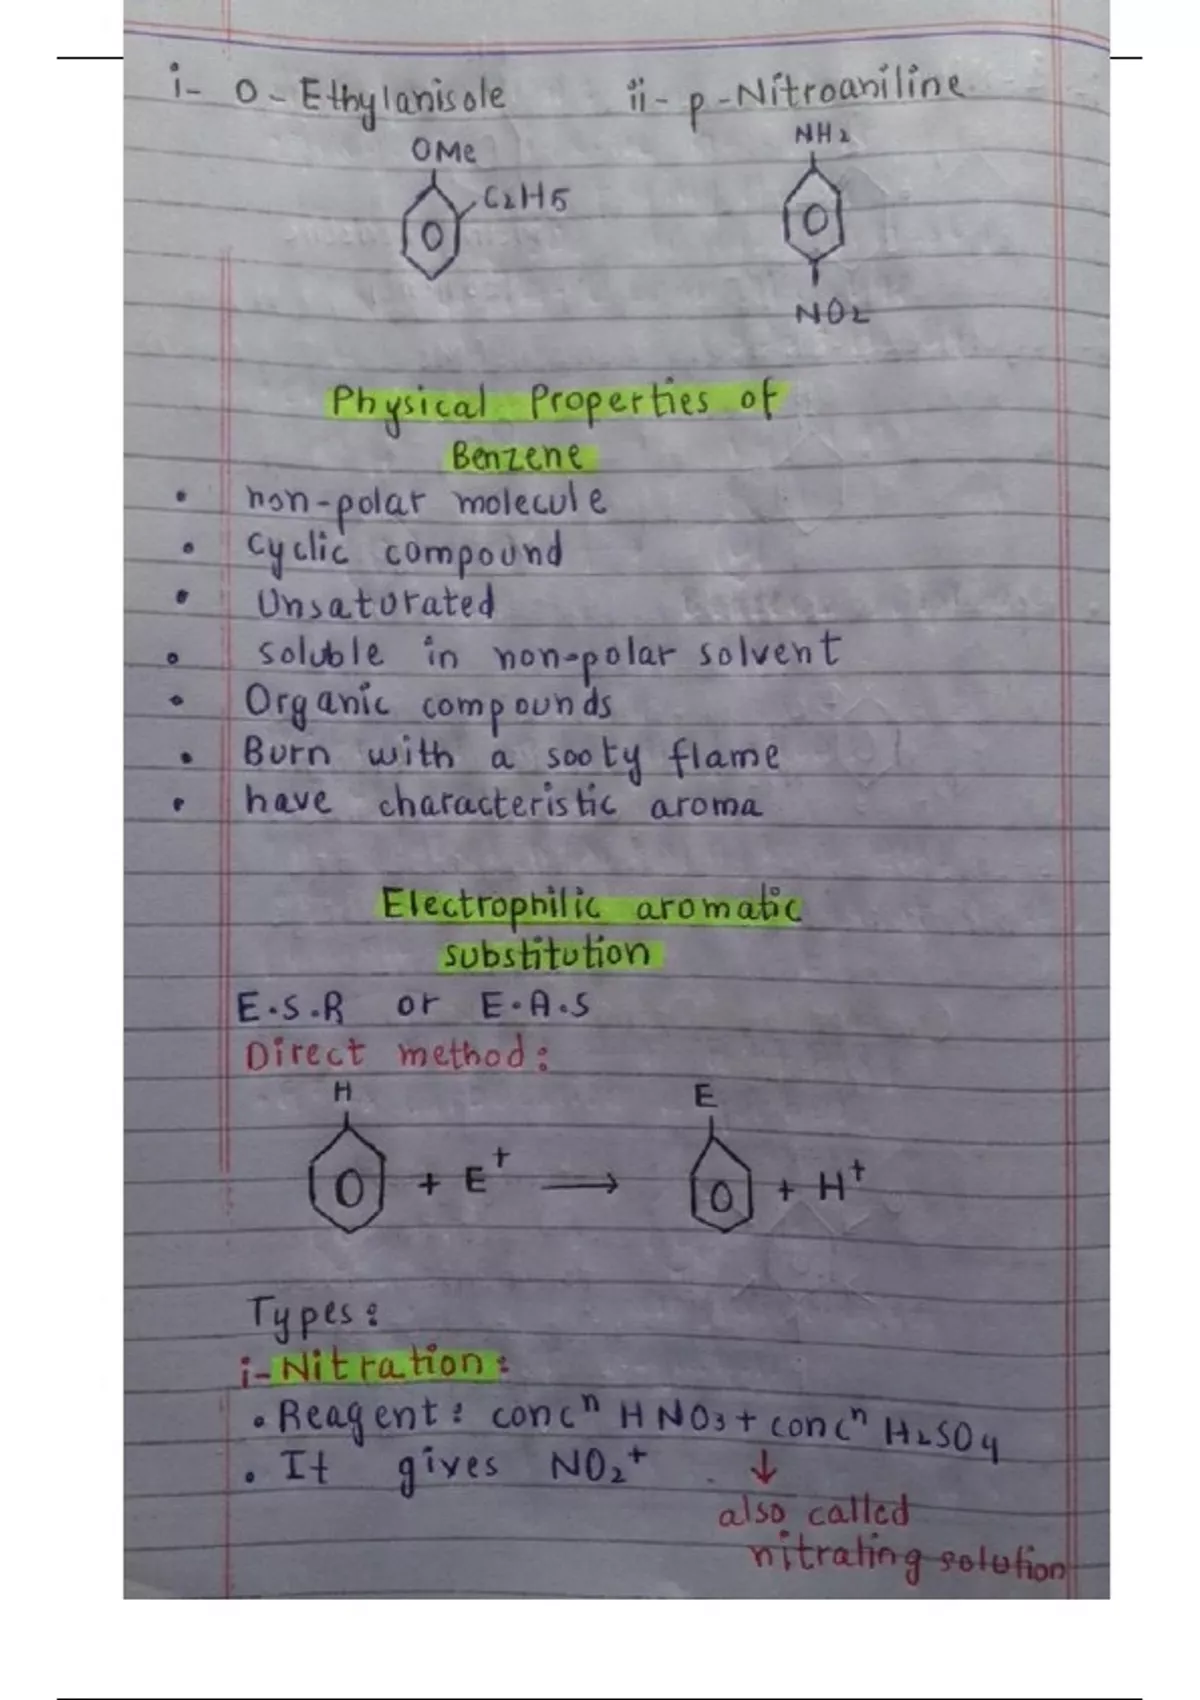 i- O-Ethylanisole ii- p-Nitroaniline
OMe
C2H5
NH2
NO2
Physical Properties of
Benzene
• non-polar molecule
• Cyclic compound
• Unsaturated
• soluble in non-polar solvent
• Organic compounds
• Burn with a sooty flame
• have characteristic aroma
Electrophilic aromatic
substitution
E.S.R or E.A.S
Direct method:
H E
+ E⁺ ⟶ + H⁺
Types:
i-Nitration:
• Reagent: concⁿ HNO3 + concⁿ H2SO4
• It gives NO2⁺ ↓
also called
nitrating solution